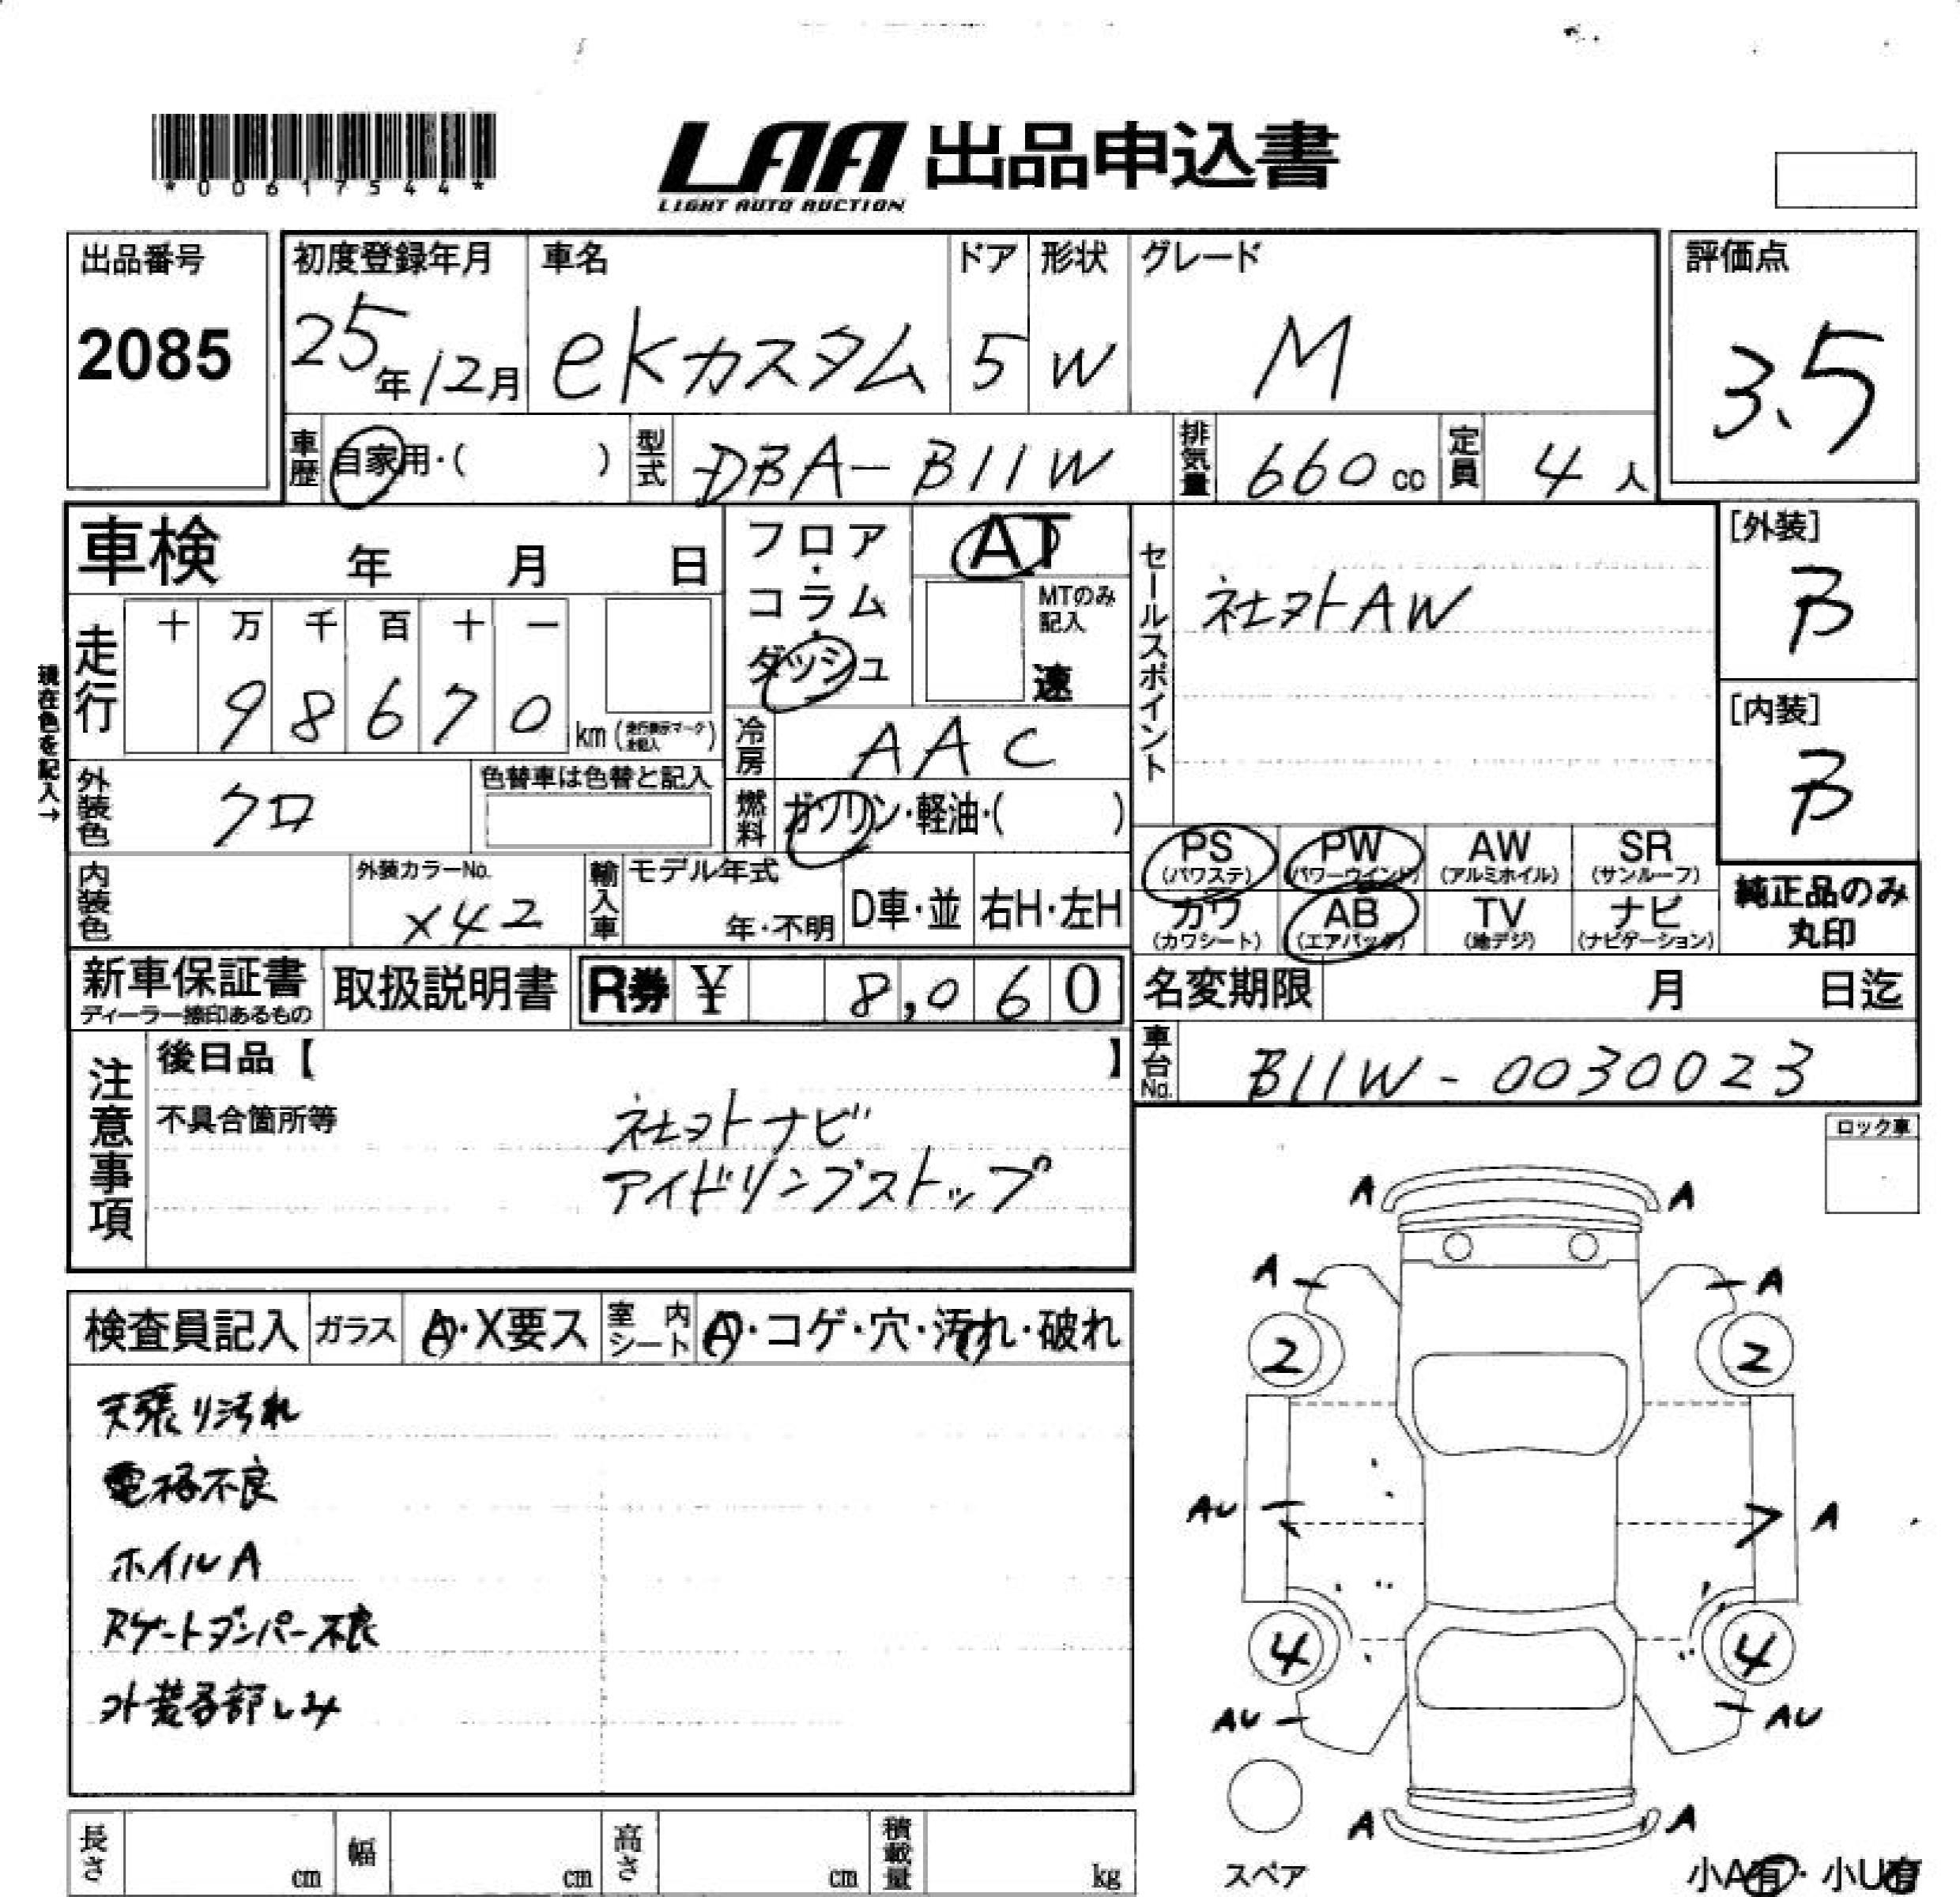 *00617544*
LAA 出品申込書
LIGHT AUTO AUCTION
出品番号 初度登録年月 車名 ドア 形状 グレード 評価点
2085 25年12月 ekカスタム 5 W M 3.5
車歴 自家用・( ) 型式 DBA-B11W 排気量 660cc 定員 4人
車検 年 月 日
フロア・コラム・ダッシュ
AT
MTのみ記入
速
セールスポイント
社外AW
[外装]
B
[内装]
B
現在色を記入→
走行 十 万 千 百 十 一
9 8 6 7 0 km(走行表示マーク未記入)
冷房 AAC
外装色 クロ 色替車は色替と記入
燃料 ガソリン・軽油・( )
PS (パワステ) PW (パワーウインド) AW (アルミホイル) SR (サンルーフ)
カワ (カワシート) AB (エアバッグ) TV (地デジ) ナビ (ナビゲーション)
純正品のみ
丸印
内装色 外装カラーNo. X42 輸入車 モデル年式 年・不明 D車・並 右H・左H
新車保証書 取扱説明書 R券 ¥ 8,060
ディーラー捺印あるもの
名変期限 月 日迄
車台No. B11W-0030023
注意事項
後日品【 】
不具合箇所等
社外ナビ
アイドリングストップ
ロック車
検査員記入 ガラス A・X要ス 室内シート A・コゲ・穴・汚れ・破れ
天張り汚れ
電格不良
ホイルA
Rゲートダンパー不良
外装各部しみ
A A
A A
2 2
AU A
4 4
AU AU
A A
スペア
小A有・小U有
長さ cm 幅 cm 高さ cm 積載量 kg